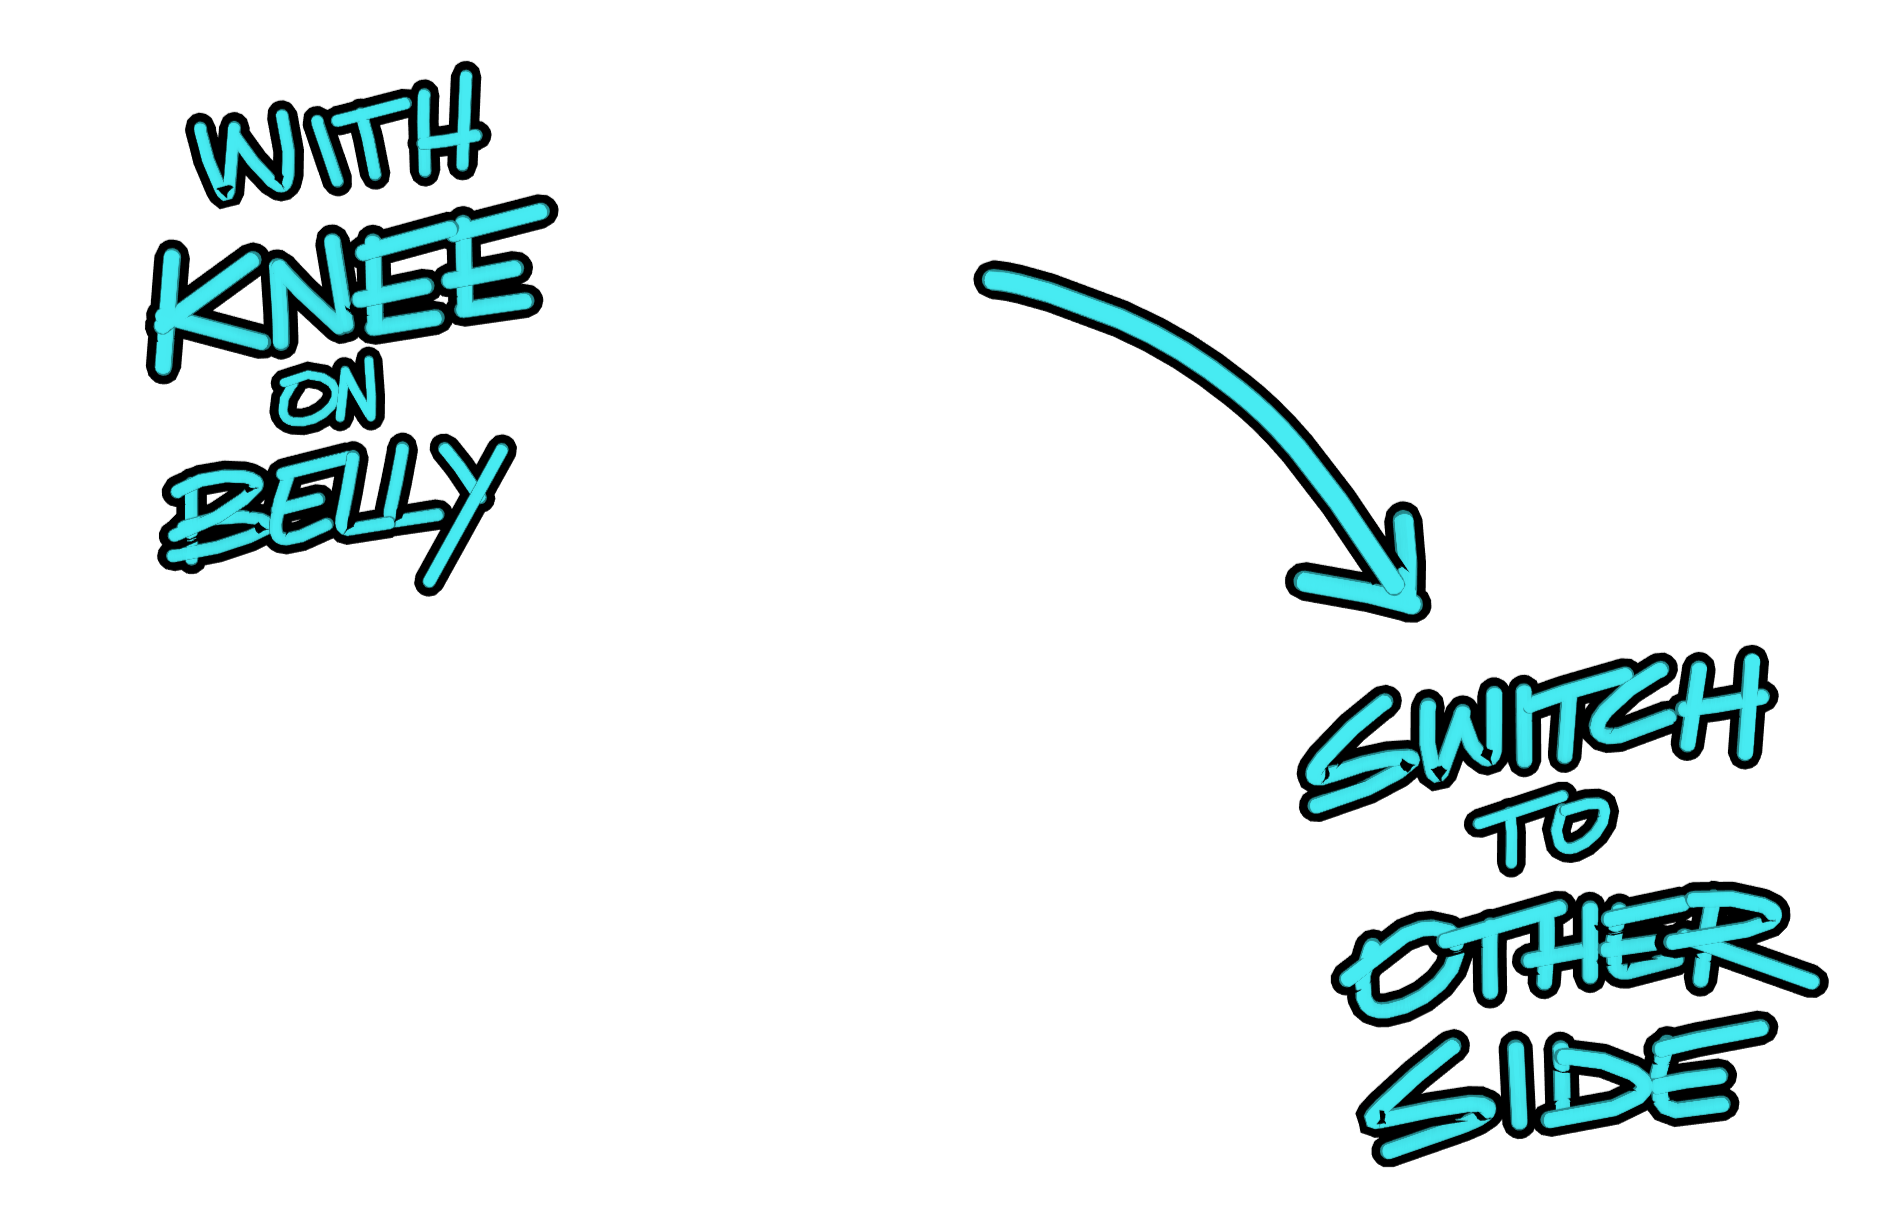 WITH
KNEE
ON
BELLY
SWITCH
TO
OTHER
SIDE